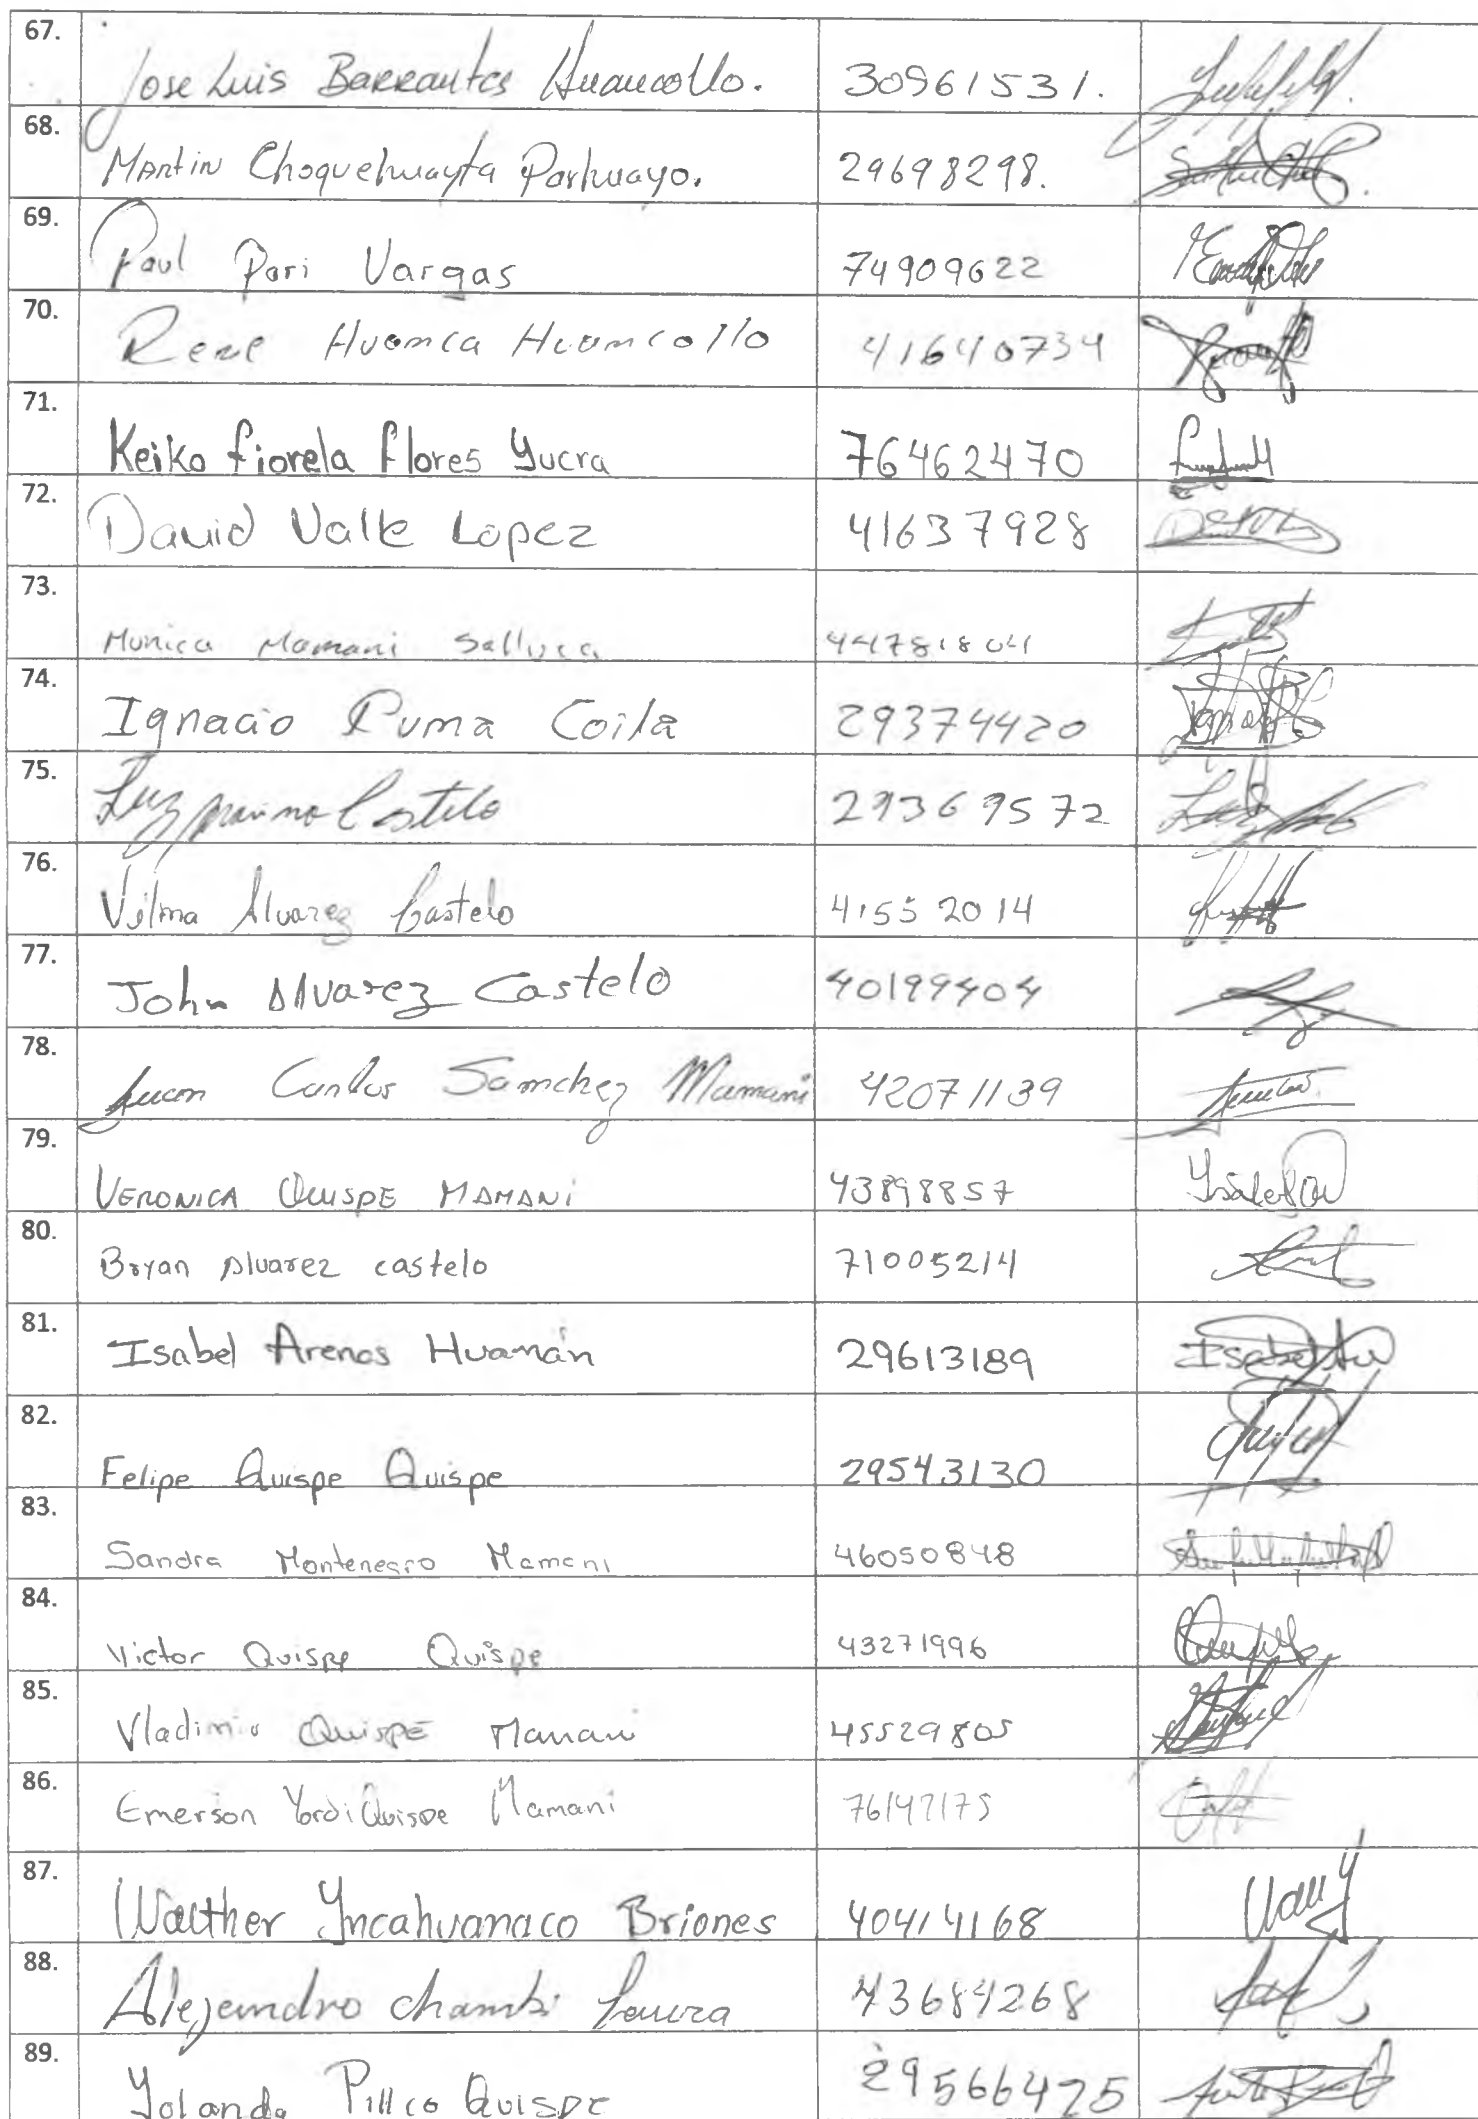 67. Jose Luis Barrantes Huancollo. 30961531.
68. Martin Choquehuayta Parhuayo. 29698298.
69. Paul Pari Vargas 74909622
70. Rene Huamca Huamcollo 41640734
71. Keiko fiorela flores Yucra 76462470
72. David Valle Lopez 41637928
73. Monica Mamani Salluca 44781804
74. Ignacio Puma Coila 29374420
75. Luzmarina Castelo 29369572
76. Vilma Alvarez Castelo 41552014
77. John Alvarez Castelo 40199404
78. Juan Carlos Sanchez Mamani 42071139
79. VERONICA QUISPE MAMANI 43898857
80. Bryan Alvarez castelo 71005214
81. Isabel Arenas Huamán 29613189
82. Felipe Quispe Quispe 29543130
83. Sandra Montenegro Mamani 46050848
84. Victor Quispe Quispe 43271996
85. Vladimir Quispe Mamani 45529805
86. Emerson Yordi Quispe Mamani 76147175
87. Walther Yncahuanaco Briones 40414168
88. Alejandro chambi Laura 43684268
89. Yolanda Pillco Quispe 29566425